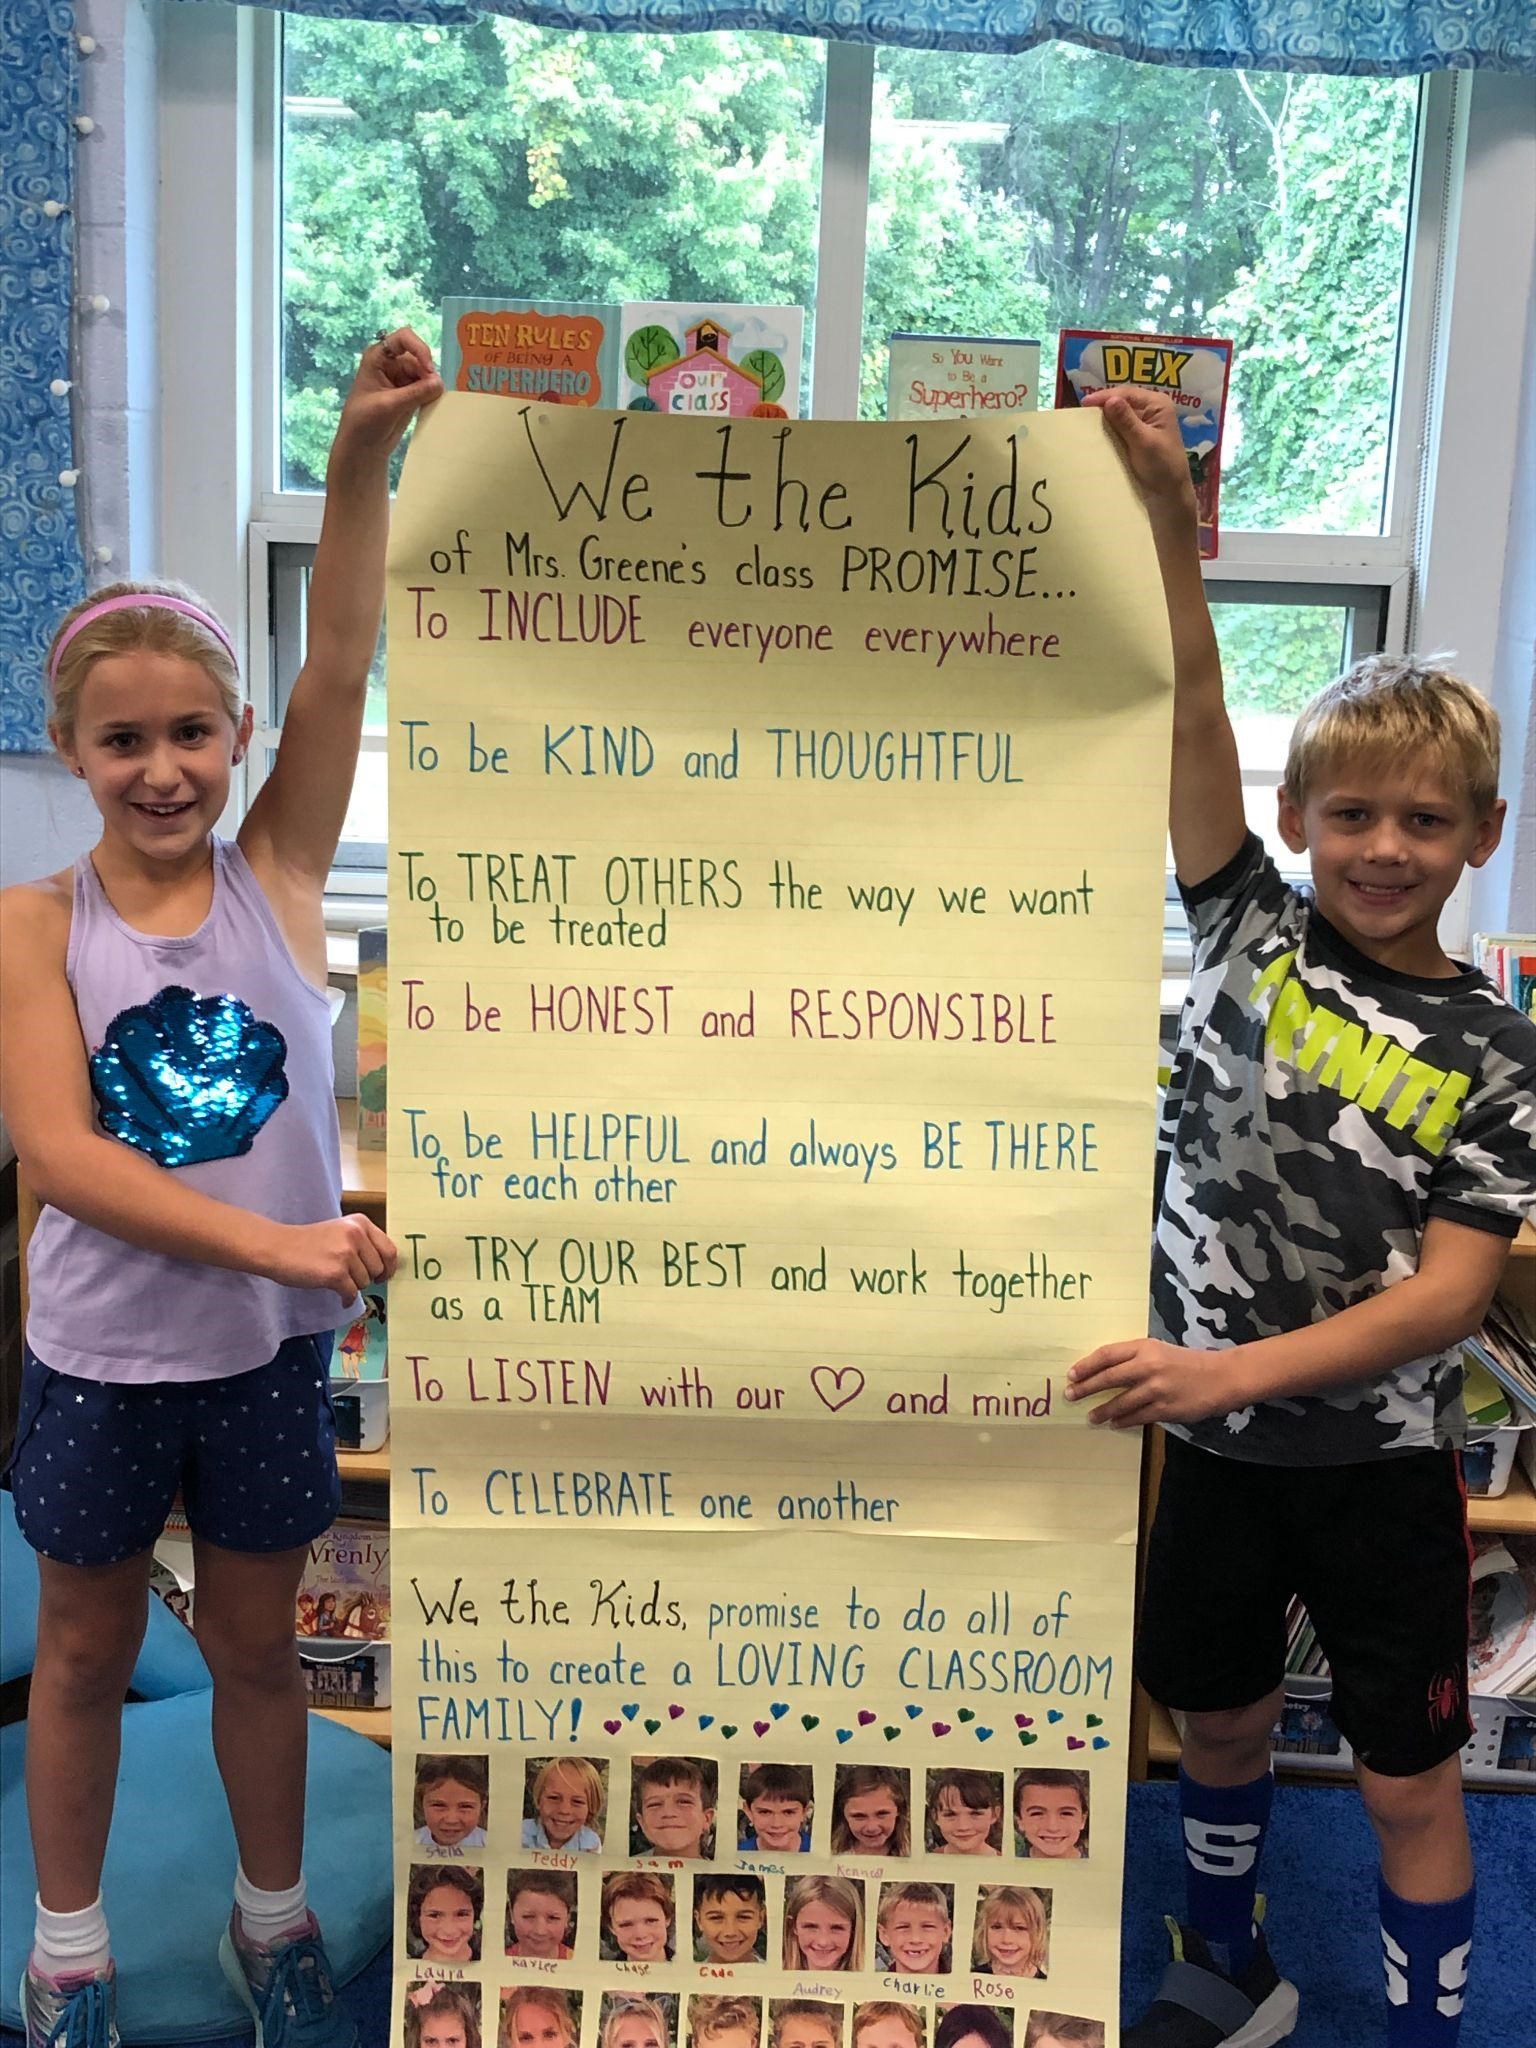 TEN RULES
OF BEING A
SUPERHERO
OUR
CLASS
So You Want
to Be a
Superhero?
NATIONAL BESTSELLER
DEX
Hero
We the Kids
of Mrs. Greene's class PROMISE...
To INCLUDE everyone everywhere
To be KIND and THOUGHTFUL
To TREAT OTHERS the way we want
to be treated
To be HONEST and RESPONSIBLE
To be HELPFUL and always BE THERE
for each other
To TRY OUR BEST and work together
as a TEAM
To LISTEN with our ♡ and mind
To CELEBRATE one another
We the Kids, promise to do all of
this to create a LOVING CLASSROOM
FAMILY!
Stella Teddy Sam James
Laura Kaylee Chase Cade Audrey Charlie Rose
RTNITE
Kingdom
Wrenly
S
S